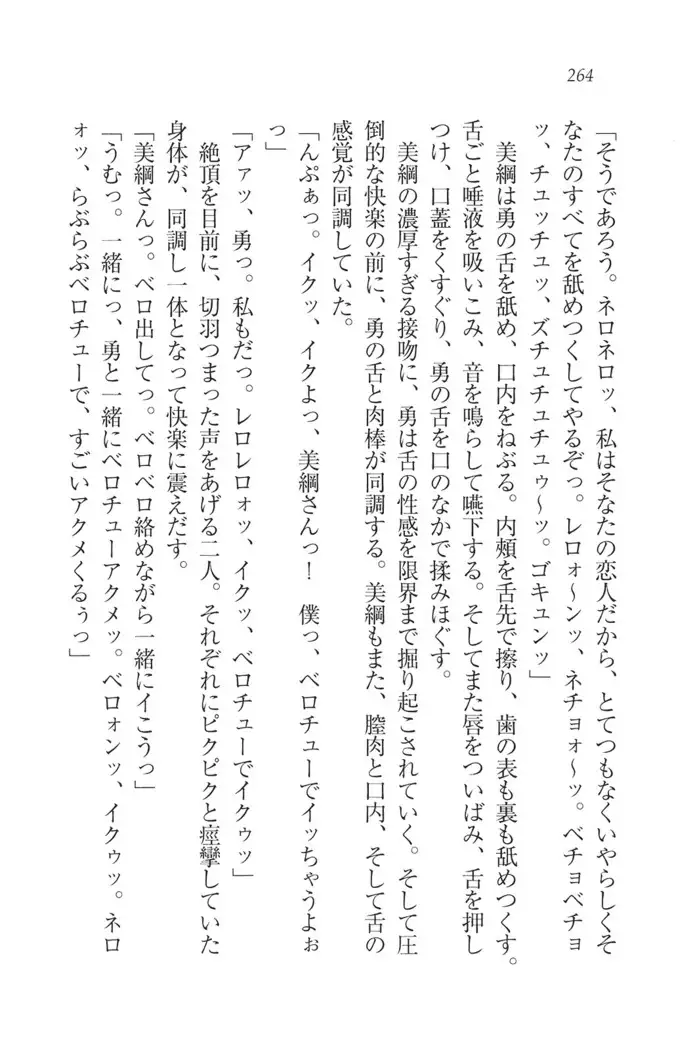 264
「そうであろう。ネロネロッ、私はそなたの恋人だから、とてつもなくいやらしくそ
なたのすべてを舐めつくしてやるぞっ。レロォ〜ンッ、ネチョォ〜ッ。ベチョベチョ
ッ、チュッチュッ、ズチュチュチュゥ〜ッ。ゴキュンッ」
　美綱は勇の舌を舐め、口内をねぶる。内頬を舌先で擦り、歯の表も裏も舐めつくす。
舌ごと唾液を吸いこみ、音を鳴らして嚥下する。そしてまた唇をついばみ、舌を押し
つけ、口蓋をくすぐり、勇の舌を口のなかで揉みほぐす。
　美綱の濃厚すぎる接吻に、勇は舌の性感を限界まで掘り起こされていく。そして圧
倒的な快楽の前に、勇の舌と肉棒が同調する。美綱もまた、膣肉と口内、そして舌の
感覚が同調していた。
「んぷぁっ。イクッ、イクよっ、美綱さんっ！　僕っ、ベロチューでイッちゃうよぉ
っ」
「アァッ、勇っ。私もだっ。レロレロォッ、イクッ、ベロチューでイクゥッ」
　絶頂を目前に、切羽つまった声をあげる二人。それぞれにピクピクと痙攣していた
身体が、同調し一体となって快楽に震えだす。
「美綱さんっ。ベロ出してっ。ベロベロ絡めながら一緒にイこうっ」
「うむっ。一緒にっ、勇と一緒にベロチューアクメッ。ベロォンッ、イクゥッ。ネロ
ォッ、らぶらぶベロチューで、すごいアクメくるぅっ」